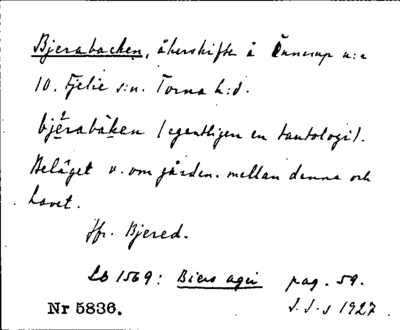 Bjerabacken, åkerskifte å Önnerup n:o
10. Fjelie s:n. Torna h:d.
bjärabàken (egentligen en tautologi).
Beläget v. om gården. mellan denna och
havet.
Jfr. Bjered.
LB 1569: Biers ager pag. 59.
Nr 5836. S. J-s 1927.